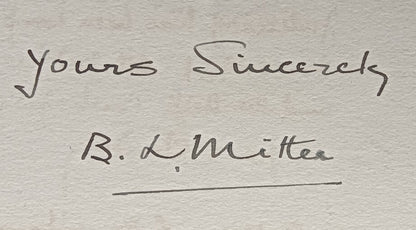 Yours Sincerely
B. L. Mitter